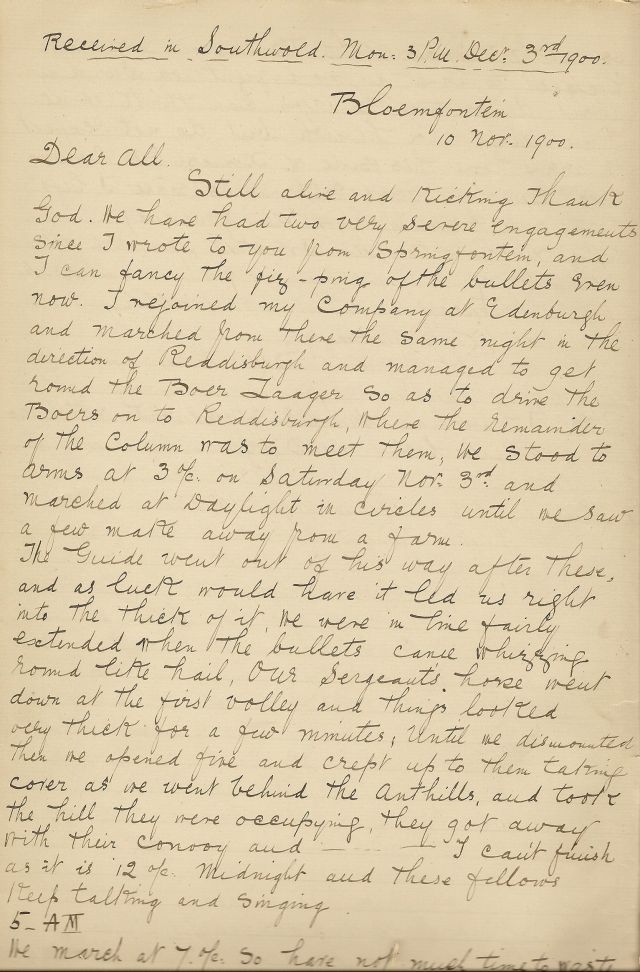 Received in Southwold. Mon: 3 P.M. Decr. 3rd 1900.
Bloemfontein
10 Nov. 1900.
Dear All.
Still alive and Kicking Thank
God. We have had two very severe engagements
since I wrote to you from Springfontein, and
I can fancy the fiz-ping of the bullets Even
now. I rejoined my Company at Edenburgh
and marched from there the same night in the
direction of Reddisburgh and managed to get
round the Boer Laager so as to drive the
Boers on to Reddisburgh, where the remainder
of the Column was to meet them, We stood to
arms at 3 o/c. on Saturday Nov. 3rd and
marched at Daylight in circles until we saw
a few make away from a farm.
The Guide went out of his way after these,
and as luck would have it led us right
into the thick of it, We were in line fairly
extended when the bullets came whizzing
round like hail, Our Sergeant's horse went
down at the first volley and things looked
very thick for a few minutes, Until we dismounted
then we opened fire and crept up to them taking
cover as we went behind the Anthills, and took
the hill they were occupying, they got away
with their convoy and - - - - - I can't finish
as it is 12 o/c. Midnight and these fellows
Keep talking and singing
5 - AM
We march at 7. o/c. so have not much time to waste